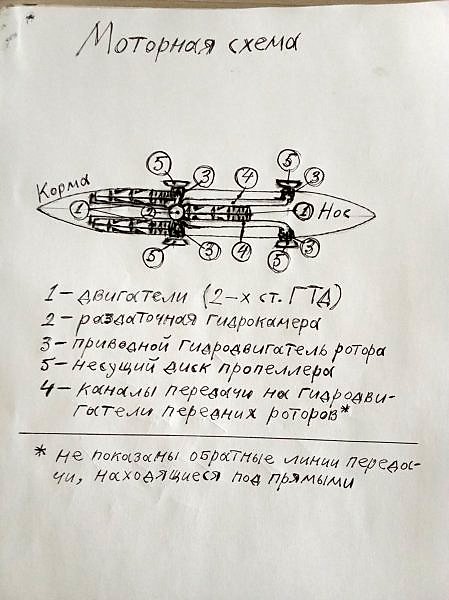 Моторная схема
5 5
3 4 3
Корма
1 2 1 Нос
5 3 4 5 3
1 - двигатели (2-х ст. ГТД)
2 - раздаточная гидрокамера
3 - приводной гидродвигатель ротора
5 - несущий диск пропеллера
4 - каналы передачи на гидродви-
гатели передних роторов*
* не показаны обратные линии переда-
чи, находящиеся под прямыми